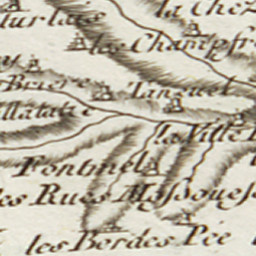 turlais
la Chez
les Champfr
Briere
Linzuel
llatatie
la Ville
Fontmiel
les Rues
Massoues
les Bordes
Pée